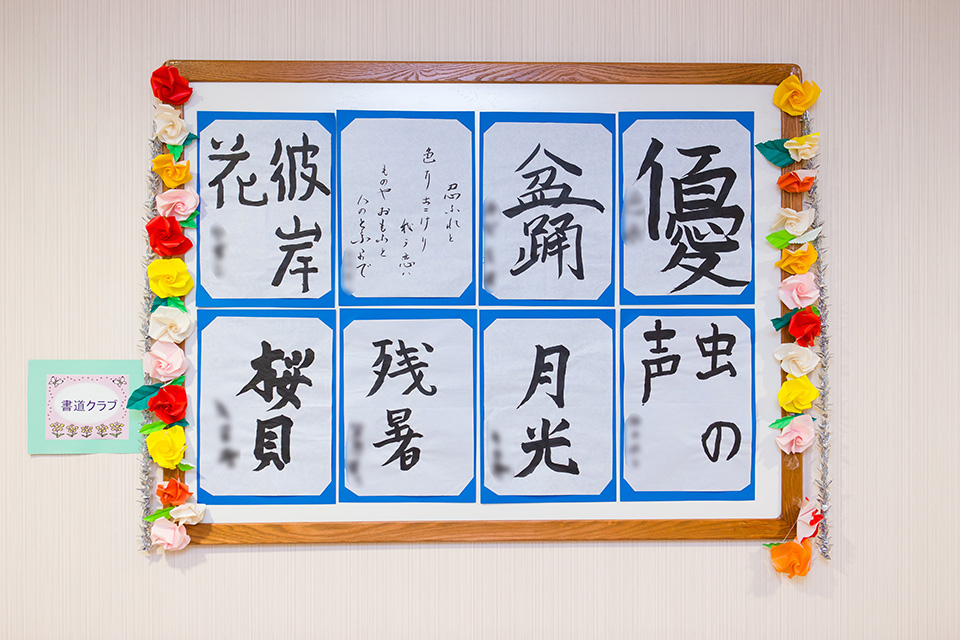 優
盆踊
忍ふれと
色り出にけり
我う恋ハ
ものやおもふと
人のとふまで
彼岸
花
虫の
声
月光
残暑
桜貝
書道クラブ